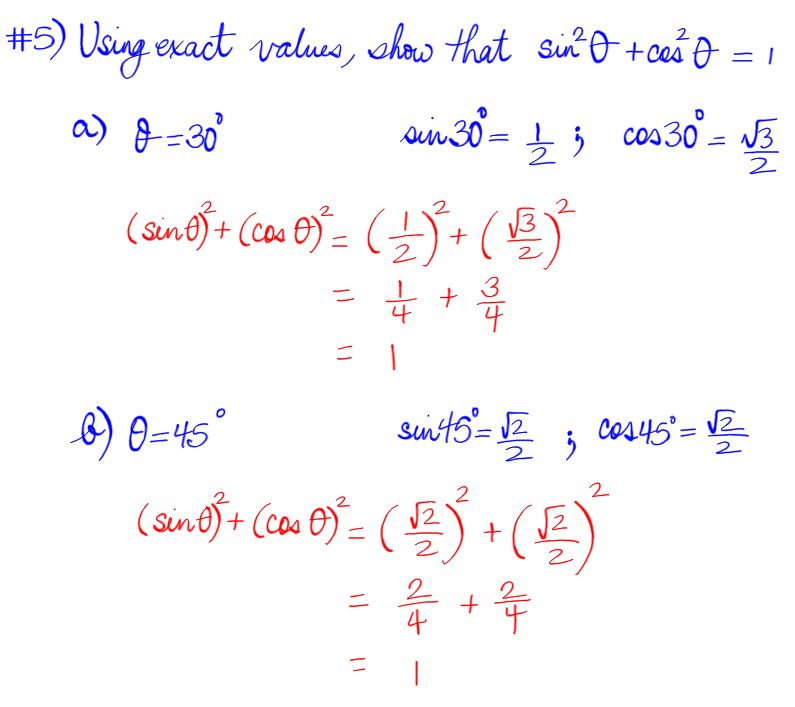 #5) Using exact values, show that sin²θ + cos²θ = 1
a) θ = 30° sin30° = 1/2 ; cos30° = √3/2
(sinθ)² + (cosθ)² = (1/2)² + (√3/2)²
= 1/4 + 3/4
= 1
b) θ = 45° sin45° = √2/2 ; cos45° = √2/2
(sinθ)² + (cosθ)² = (√2/2)² + (√2/2)²
= 2/4 + 2/4
= 1